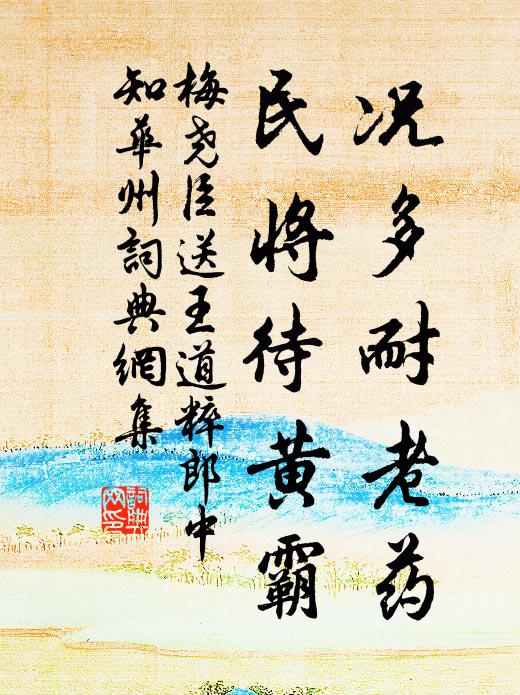 况多耐老药
民将待黄霸
梅尧臣送王道粹郎中
知华州詞典網集
詞典网印